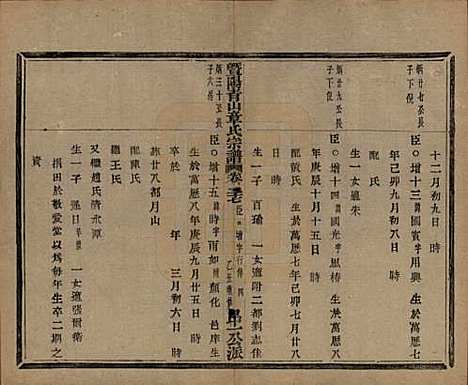 十二月初九日 時
炳廿七公長子下倪
臣○增十三國賓字用興 生於萬歷七
年己卯九月初八日 時
配 氏
生一女適朱
炳廿九公長子下倪
臣○增十四國光字思椿 生於萬歷八
年庚辰十月十五日 時
配黃氏 生於萬歷七年己卯七月
日 時
生一子 百瑜 一女適附二都劉志佳
暨陽青山章氏宗譜
臣 增字行傳
公派
炳三十公長子六房
臣○增十五 字 顏化 邑庠生
生於萬歷八年庚辰九月廿五日 時
卒於 年 三月初六日 時
葬廿八都月山
配陳氏
繼王氏
又繼趙氏清水潭
生一子 一女適張爾
捐田於敬愛堂以為每年生卒二期之
資